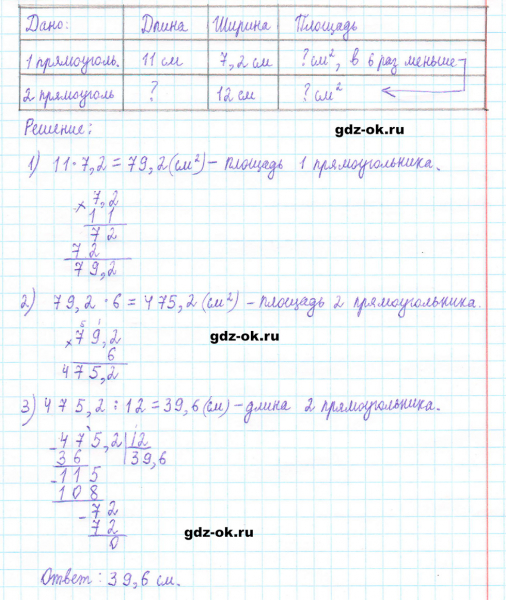 Дано: Длина Ширина Площадь
1 прямоугол. 11 см 7,2 см ? см², в 6 раз меньше
2 прямоугол ? 12 см ? см²
Решение:
gdz-ok.ru
1) 11·7,2=79,2(см²)-площадь 1 прямоугольника.
× 7,2
1 1
7 2
7 2
7 9,2
2) 79,2·6=475,2(см²)-площадь 2 прямоугольника.
5 1
× 79,2
6
475,2
gdz-ok.ru
3) 475,2:12=39,6(см)-длина 2 прямоугольника.
- 475,2 | 12
36 39,6
- 115
108
- 72
72
0
gdz-ok.ru
Ответ: 39,6 см.